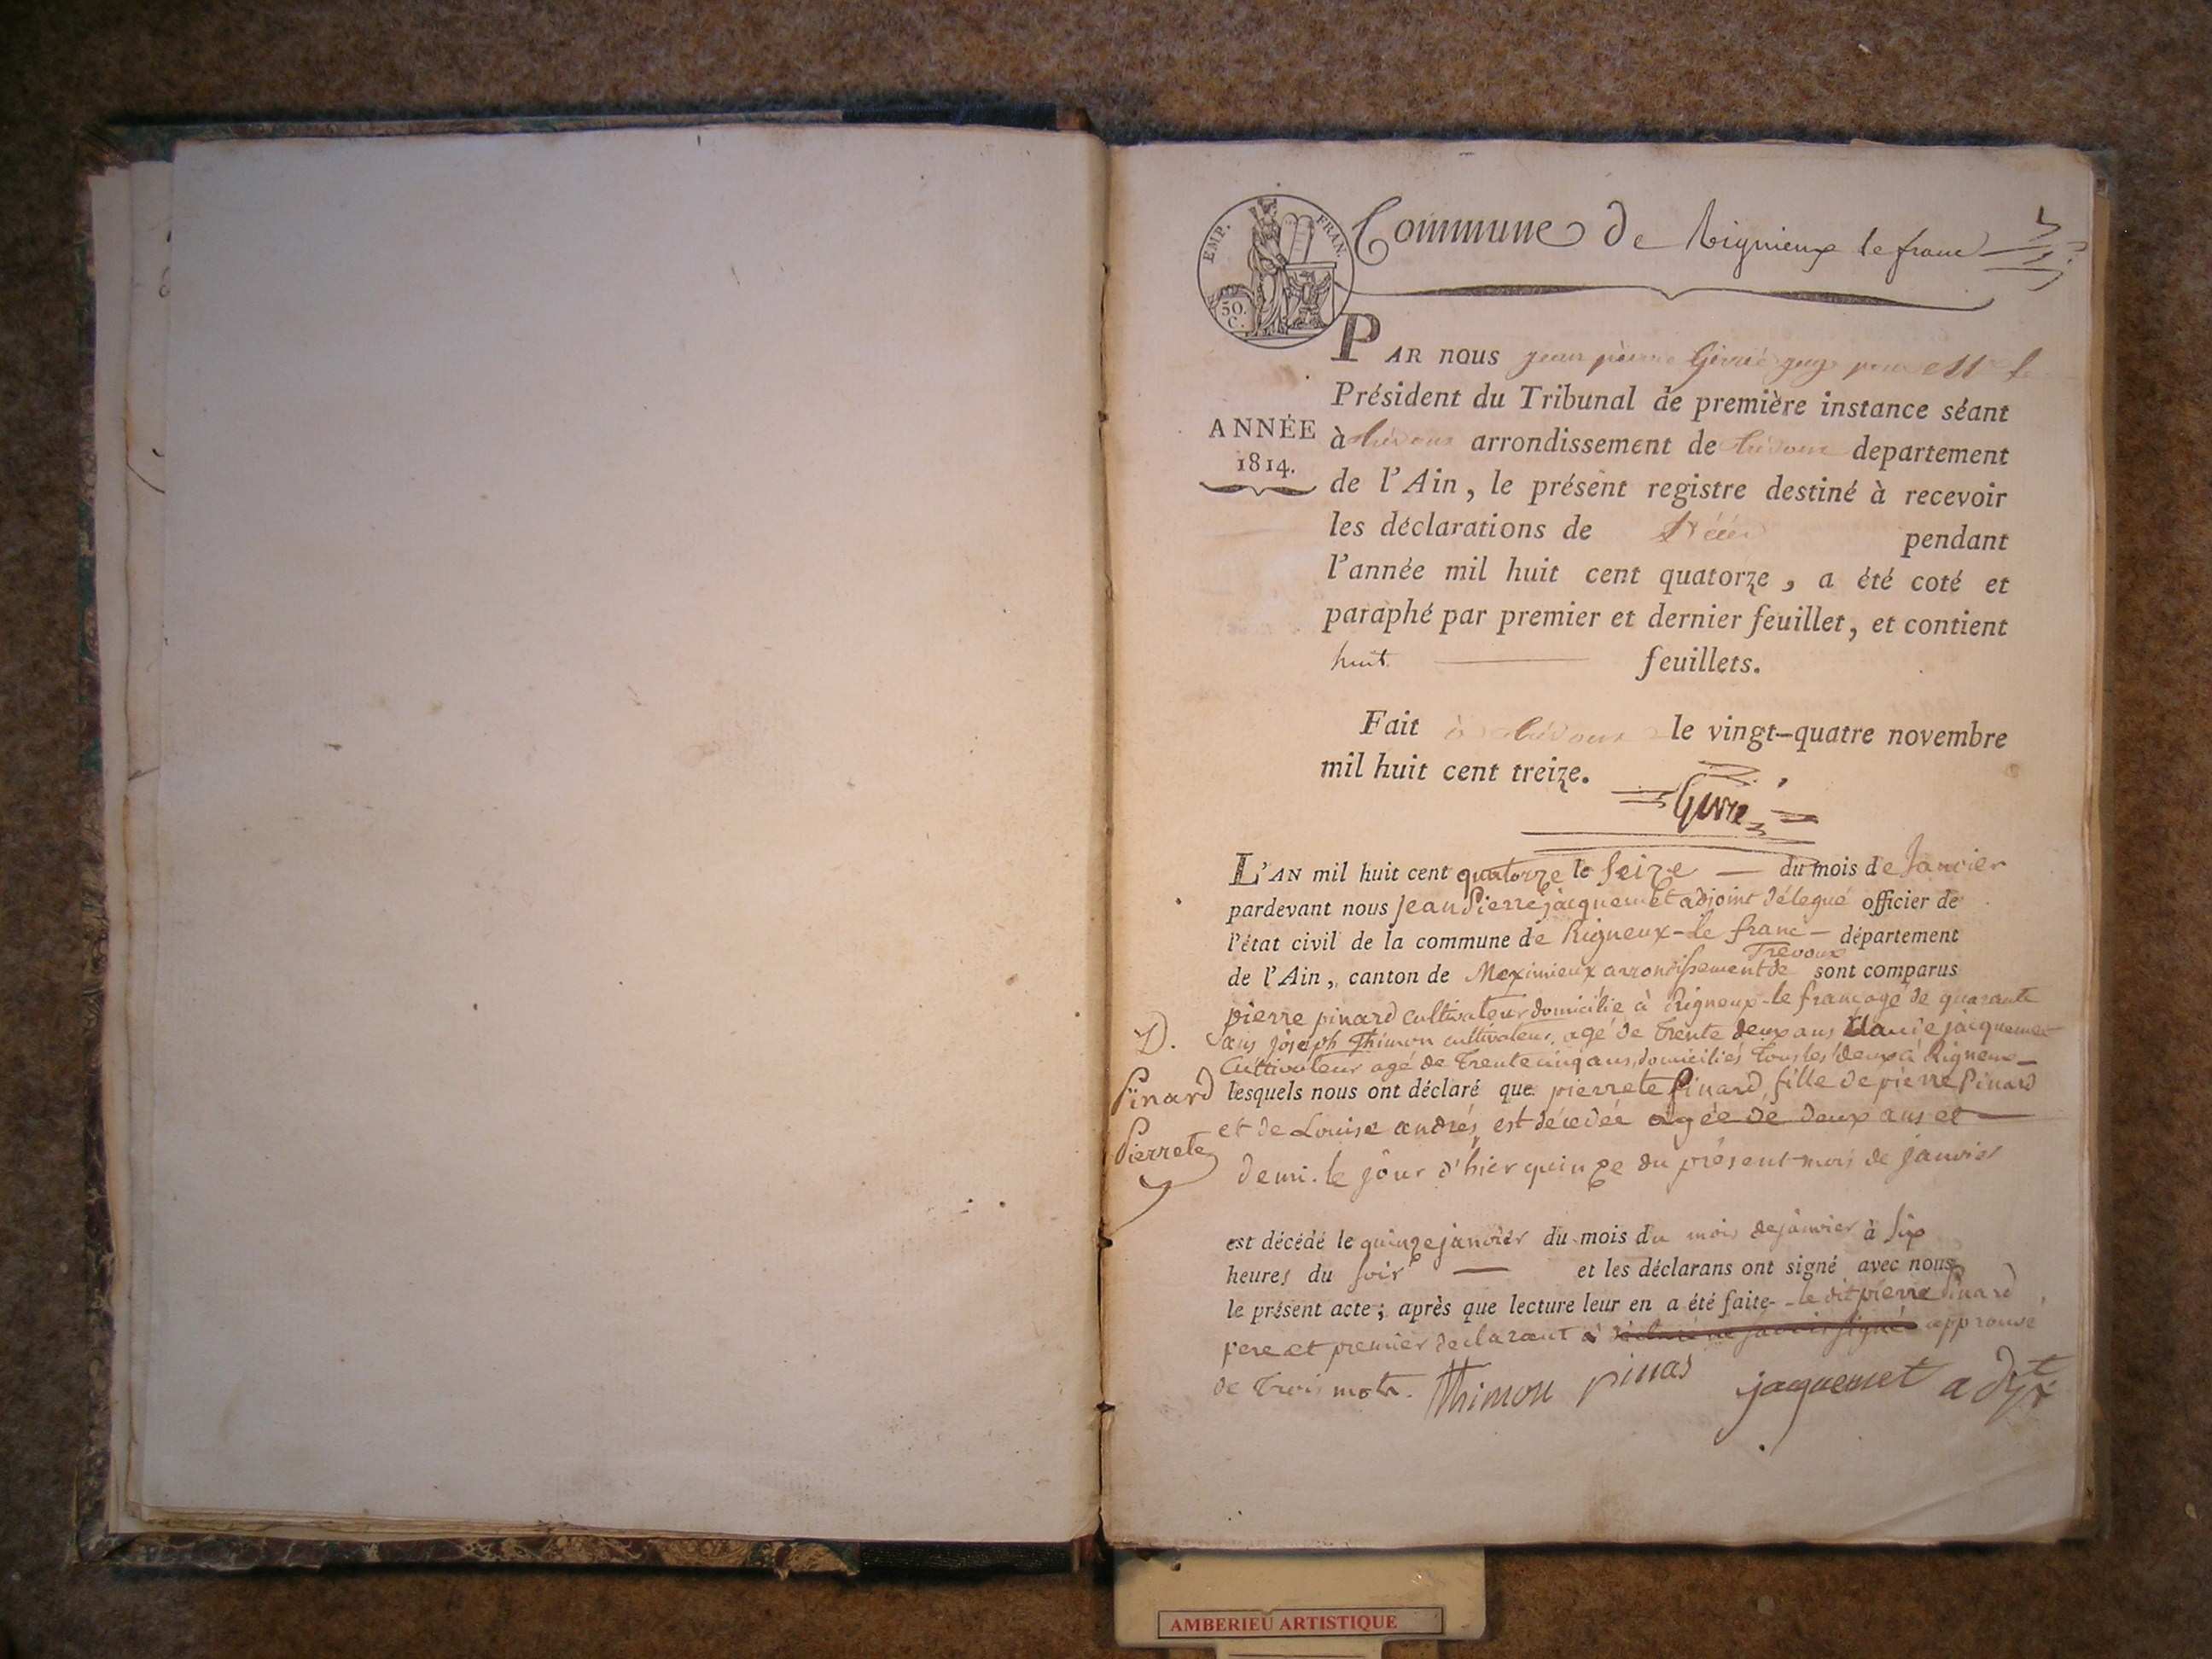 EMP. FRAN.
50.
C.
Commune de Rignieux le franc
PAR nous jean pierre Givré juge pour Mr le
Président du Tribunal de première instance séant
ANNÉE
1814.
à trévoux arrondissement de trévoux departement
de l'Ain, le présent registre destiné à recevoir
les déclarations de Décès pendant
l'année mil huit cent quatorze, a été coté et
paraphé par premier et dernier feuillet, et contient
huit feuillets.
Fait à trévoux le vingt-quatre novembre
mil huit cent treize.
Givré
L'AN mil huit cent quatorze le seize — du mois de Janvier
pardevant nous Jean Pierre jacquemet adjoint délegué officier de
l'état civil de la commune de Rigneux-le franc — département
Trevoux
de l'Ain, canton de Meximieux arrondissement de sont comparus
pierre pinard cultivateur domicilie à Rigneux-le franc agé de quarante
ans joseph Thimon cultivateur, agé de trente deux ans Claude jacquemet
Cultivateur agé de trente cinq ans, domiciliés tous les deux à Rigneux —
D.
Pinard
Pierrete
lesquels nous ont déclaré que pierrete Pinard, fille de pierre Pinard
et de Louise andrés, est décedée agée de deux ans et —
demi. le jour d'hier quinze du présent mois de janvier
est décédé le quinze janvier du mois du mois de janvier à six
heures du soir — et les déclarans ont signé avec nous
le présent acte; après que lecture leur en a été faite - le dit pierre Pinard
pere et premier declarant à déclaré ne savoir signer approuvé
de trois mots. Thimon pinas jaquemet adjt
AMBERIEU ARTISTIQUE